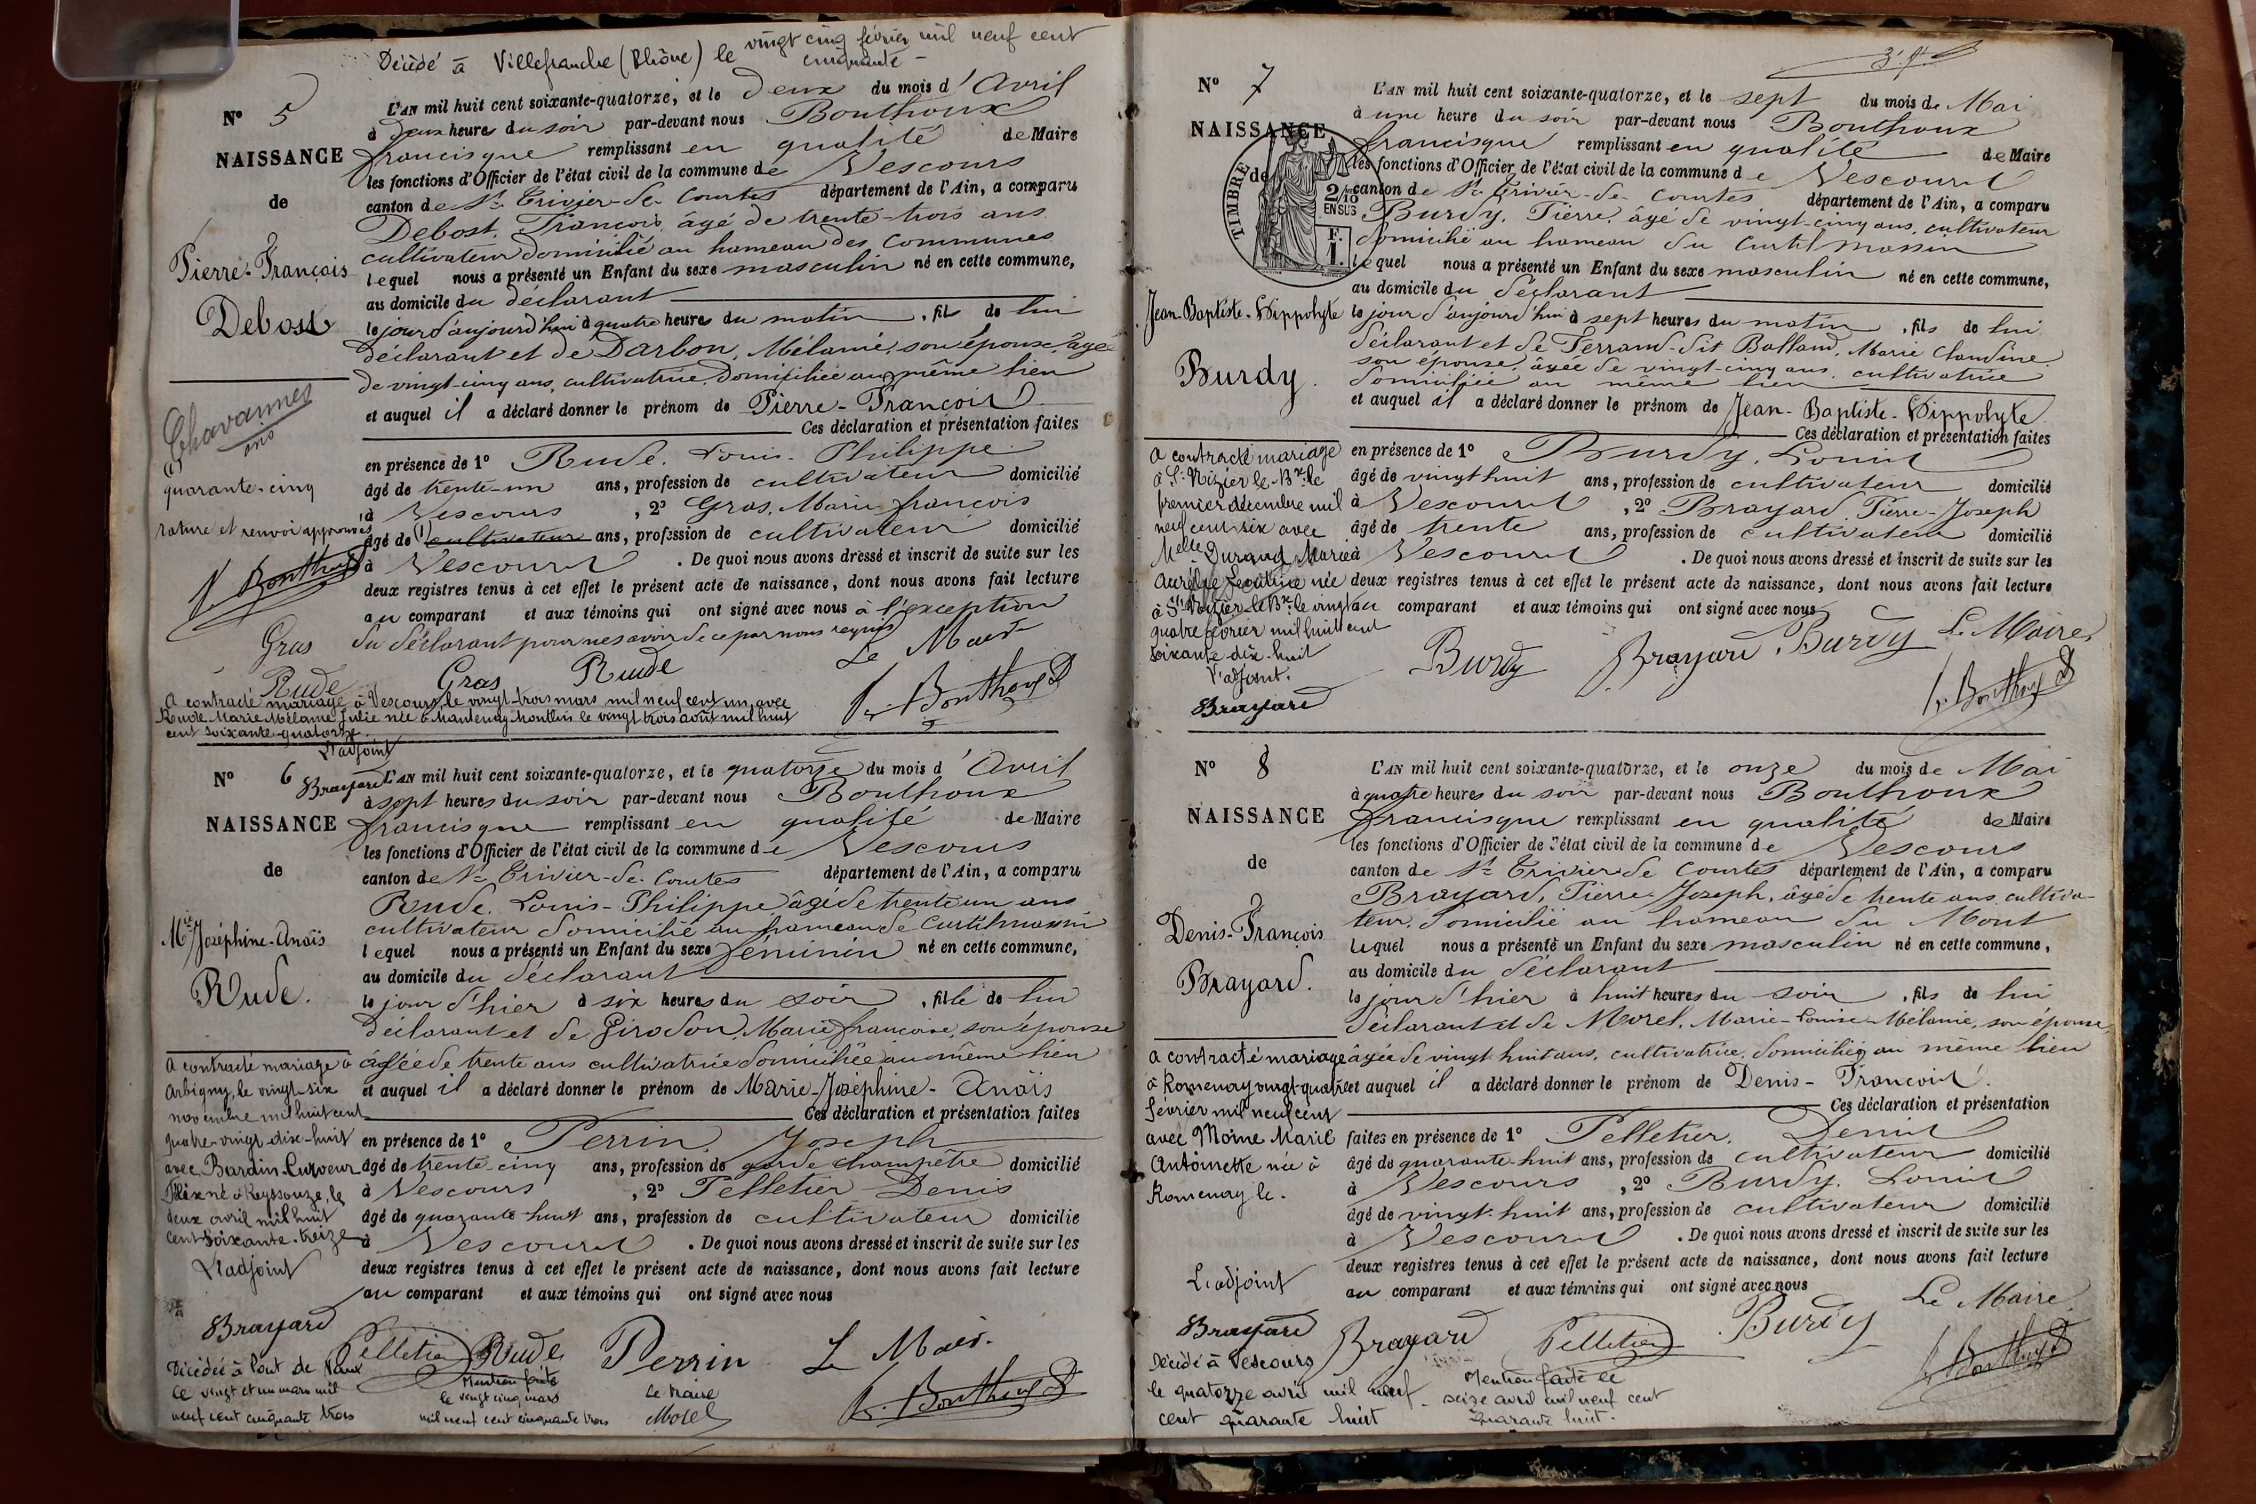 Décédé à Villefranche (Rhône) le vingt cinq février mil neuf cent
cinquante
N° 5
NAISSANCE
de
Pierre-François
Debost
L'AN mil huit cent soixante-quatorze, et le deux du mois d'Avril
à deux heures du soir par-devant nous Bouthoux
francisque remplissant en qualité de Maire
les fonctions d'Officier de l'état civil de la commune de Vescours
canton de St Trivier-de-Courtes département de l'Ain, a comparu
Debost, François, âgé de trente-trois ans
cultivateur domicilié au hameau des Communes
lequel nous a présenté un Enfant du sexe masculin né en cette commune,
au domicile du déclarant
le jour d'aujourd'hui à quatre heures du matin, fils de lui
déclarant et de Darbon, Mélanie, son épouse, âgée
de vingt-cinq ans, cultivatrice, domiciliée au même lieu
et auquel il a déclaré donner le prénom de Pierre-François
Ces déclaration et présentation faites
en présence de 1° Rude, Louis-Philippe
âgé de trente-un ans, profession de cultivateur domicilié
à Vescours, 2° Gras, Marie françois
âgé de (1) cultivateur ans, profession de cultivateur domicilié
à Vescours. De quoi nous avons dressé et inscrit de suite sur les
deux registres tenus à cet effet le présent acte de naissance, dont nous avons fait lecture
au comparant et aux témoins qui ont signé avec nous à l'exception
du déclarant pour ne savoir de ce par nous requis
Chavannes
(1)
quarante-cinq
rature et renvoi approuvés
F. Bouthoux
Gras
Rude
Gras
Rude
Le Maire
F. Bouthoux
A contracté mariage à Vescours, le vingt-trois mars mil neuf cent un, avec
Marie Mélanie Julie née à Mantenay Montlin le vingt trois août mil huit
cent soixante-quatorze
L'adjoint
Brayard
N° 6
NAISSANCE
de
Mie Joséphine-Anaïs
Rude.
L'AN mil huit cent soixante-quatorze, et le quatorze du mois d'Avril
à sept heures du soir par-devant nous Bouthoux
francisque remplissant en qualité de Maire
les fonctions d'Officier de l'état civil de la commune de Vescours
canton de St Trivier-de-Courtes département de l'Ain, a comparu
Rude, Louis-Philippe âgé de trente un ans
cultivateur domicilié au hameau de Curtilmassin
lequel nous a présenté un Enfant du sexe féminin né en cette commune,
au domicile du déclarant
le jour d'hier à six heures du soir, fille de lui
déclarant et de Girodon, Marie françoise, son épouse
agée de trente ans cultivatrice domiciliée au même lieu
et auquel il a déclaré donner le prénom de Marie-Joséphine-Anaïs
Ces déclaration et présentation faites
en présence de 1° Perrin, Joseph
âgé de trente-cinq ans, profession de garde champêtre domicilié
à Vescours, 2° Pelletier Denis
âgé de quarante-huit ans, profession de cultivateur domicilié
à Vescours. De quoi nous avons dressé et inscrit de suite sur les
deux registres tenus à cet effet le présent acte de naissance, dont nous avons fait lecture
au comparant et aux témoins qui ont signé avec nous
A contracté mariage à
Arbigny, le vingt-six
novembre mil huit cent
quatre-vingt-dix-huit
avec Bardin-Curveur
Félix né à Reyssouze, le
deux avril mil huit
cent soixante-treize
L'adjoint
Brayard
Pelletier Rude Perrin Le Maire
F. Bouthoux
Décédée à Pont de Vaux
le vingt et un mars mil
neuf cent cinquante trois
Mention faite
le vingt cinq mars
mil neuf cent cinquante trois
Le Maire
Morel
N° 7
NAISSANCE
de
TIMBRE
2/10
EN SUS
F.
1.
Jean-Baptiste-Hippolyte
Burdy.
L'AN mil huit cent soixante-quatorze, et le sept du mois de Mai
à une heure du soir par-devant nous Bouthoux
francisque remplissant en qualité de Maire
les fonctions d'Officier de l'état civil de la commune de Vescours
canton de St Trivier-de-Courtes département de l'Ain, a comparu
Burdy, Pierre, âgé de vingt-cinq ans, cultivateur
domicilié au hameau du Curtil massin
lequel nous a présenté un Enfant du sexe masculin né en cette commune,
au domicile du déclarant
le jour d'aujourd'hui à sept heures du matin, fils de lui
déclarant et de Ferrand-dit Balland, Marie Claudine
son épouse, âgée de vingt-cinq ans, cultivatrice
domiciliée au même lieu
et auquel il a déclaré donner le prénom de Jean-Baptiste-Hippolyte
Ces déclaration et présentation faites
en présence de 1° Burdy, Louis
âgé de vingt huit ans, profession de cultivateur domicilié
à Vescours, 2° Brayard, Pierre-Joseph
âgé de trente ans, profession de cultivateur domicilié
à Vescours. De quoi nous avons dressé et inscrit de suite sur les
deux registres tenus à cet effet le présent acte de naissance, dont nous avons fait lecture
au comparant et aux témoins qui ont signé avec nous
A contracté mariage
à St Nizier-le-Bet le
premier décembre mil
neuf cent six avec
Melle Durand Marie
Aurélie Léontine née
à St Nizier-le-Bet le vingt
quatre février mil huit cent
soixante-dix-huit
L'adjoint.
Brayard
Burdy Brayard Burdy Le Maire,
F. Bouthoux
N° 8
NAISSANCE
de
Denis-François
Brayard.
L'AN mil huit cent soixante-quatorze, et le onze du mois de Mai
à quatre heures du soir par-devant nous Bouthoux
francisque remplissant en qualité de Maire
les fonctions d'Officier de l'état civil de la commune de Vescours
canton de St Trivier de Courtes département de l'Ain, a comparu
Brayard, Pierre-Joseph, âgé de trente ans, cultiva-
teur, domicilié au hameau du Mont
lequel nous a présenté un Enfant du sexe masculin né en cette commune,
au domicile du déclarant
le jour d'hier à huit heures du soir, fils de lui
déclarant et de Morel, Marie-Louise-Mélanie, son épouse,
âgée de vingt-huit ans, cultivatrice, domiciliée au même lieu
et auquel il a déclaré donner le prénom de Denis-François
Ces déclaration et présentation
faites en présence de 1° Pelletier, Denis
âgé de quarante-huit ans, profession de cultivateur domicilié
à Vescours, 2° Burdy, Louis
âgé de vingt-huit ans, profession de cultivateur domicilié
à Vescours. De quoi nous avons dressé et inscrit de suite sur les
deux registres tenus à cet effet le présent acte de naissance, dont nous avons fait lecture
au comparant et aux témoins qui ont signé avec nous
A contracté mariage
à Romenay vingt-quatre
février mil neuf cent
avec Moine Marie
Antoinette née à
Romenay le.
L'adjoint
Brayard
Brayard Pelletier Burdy Le Maire
F. Bouthoux
Décédé à Vescours
le quatorze avril mil neuf
cent quarante huit
Mention faite le
seize avril mil neuf cent
quarante huit.